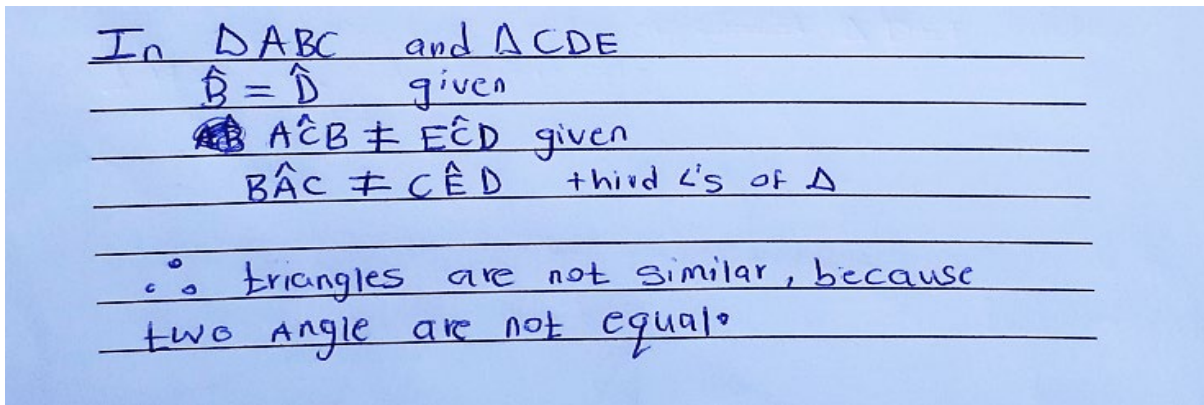 In ΔABC and ΔCDE
B̂ = D̂ given
AĈB ≠ EĈD given
BÂC ≠ CÊD third ∠'s of Δ
∴ triangles are not similar, because
two Angle are not equal.